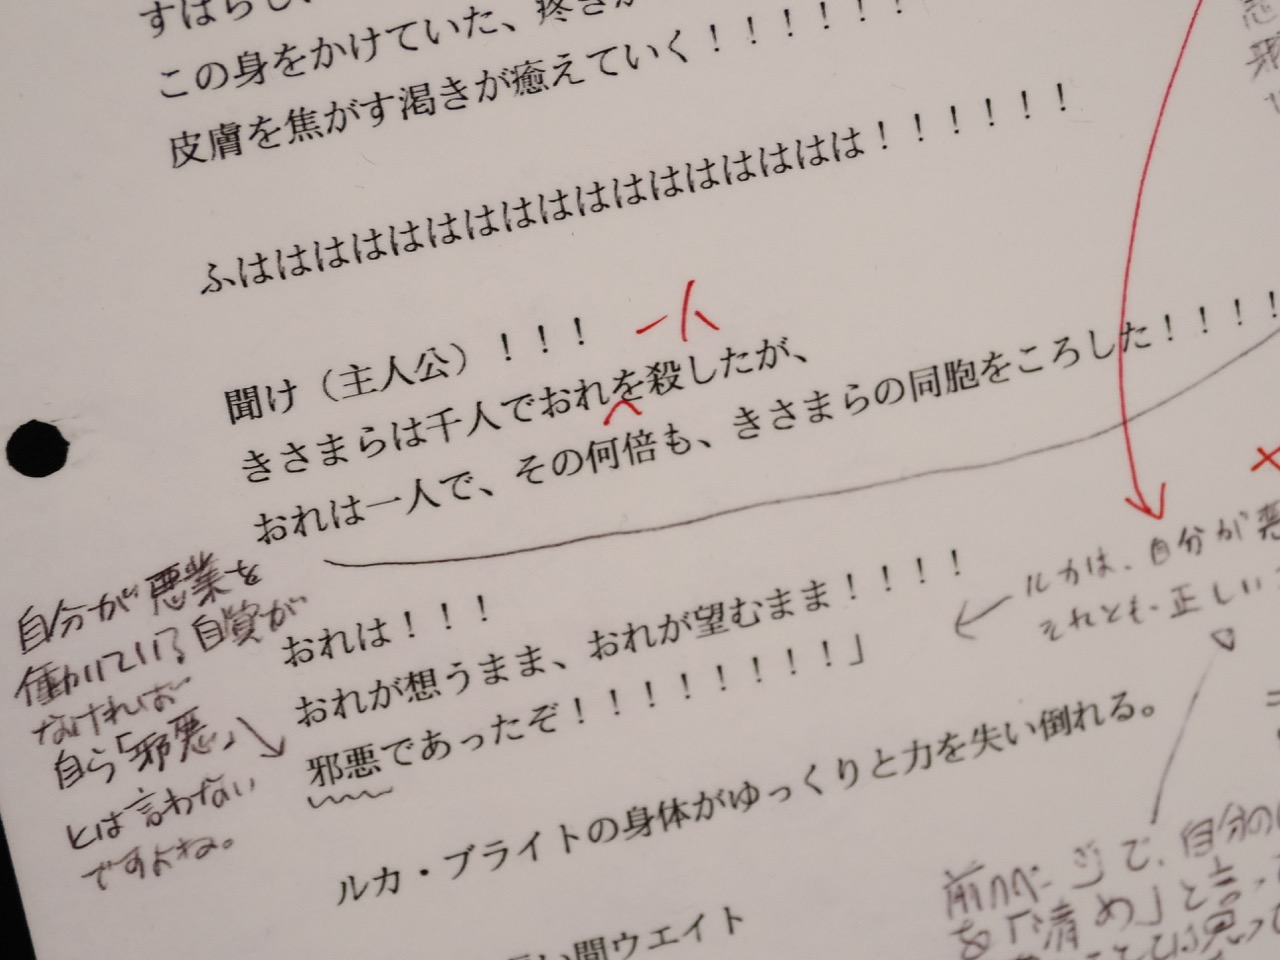 すばらしい
この身をかけていた、疼きが
皮膚を焦がす渇きが癒えていく！！！！！！
ふはははははははははははははははははは！！！！！！
一人
聞け（主人公）！！！
きさまらは千人でおれを殺したが、
おれは一人で、その何倍も、きさまらの同胞をころした！！！！
自分が悪業を
働いている自覚が
なければ
自ら「邪悪」
とは言わない
ですよね。
おれは！！！
おれが想うまま、おれが望むまま！！！！
邪悪であったぞ！！！！！！！！！」
ルカは、自分が悪
それとも、正しい
ルカ・ブライトの身体がゆっくりと力を失い倒れる。
前のページで、自分の
を「清め」と言っ
い間ウエイト